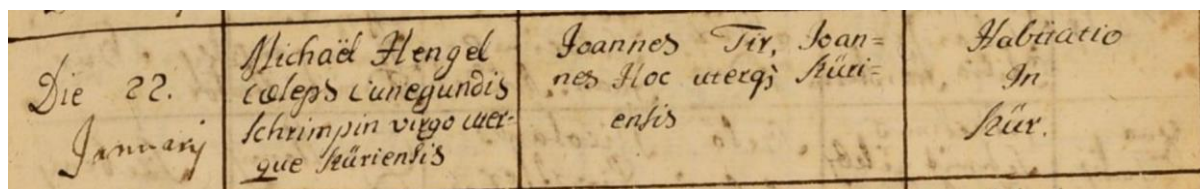 Die 22.
Januarij
Michaël Hengel
cæleps Cunegundis
Schrimpin virgo uter-
que Küriensis
Joannes Tir, Joan=
nes Hoc uterq; Küri=
ensis
Habitatio
In
Kür.